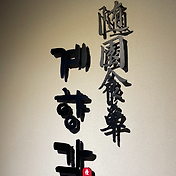 隨園食單
계향각